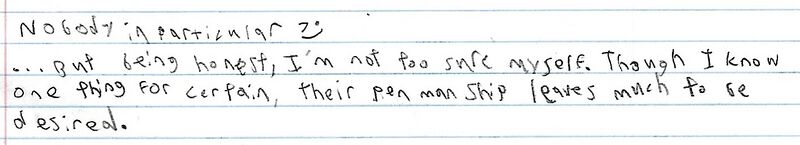 Nobody in particular ;)
... But being honest, I'm not too sure myself. Though I know
one thing for certain, their penmanship leaves much to be
desired.